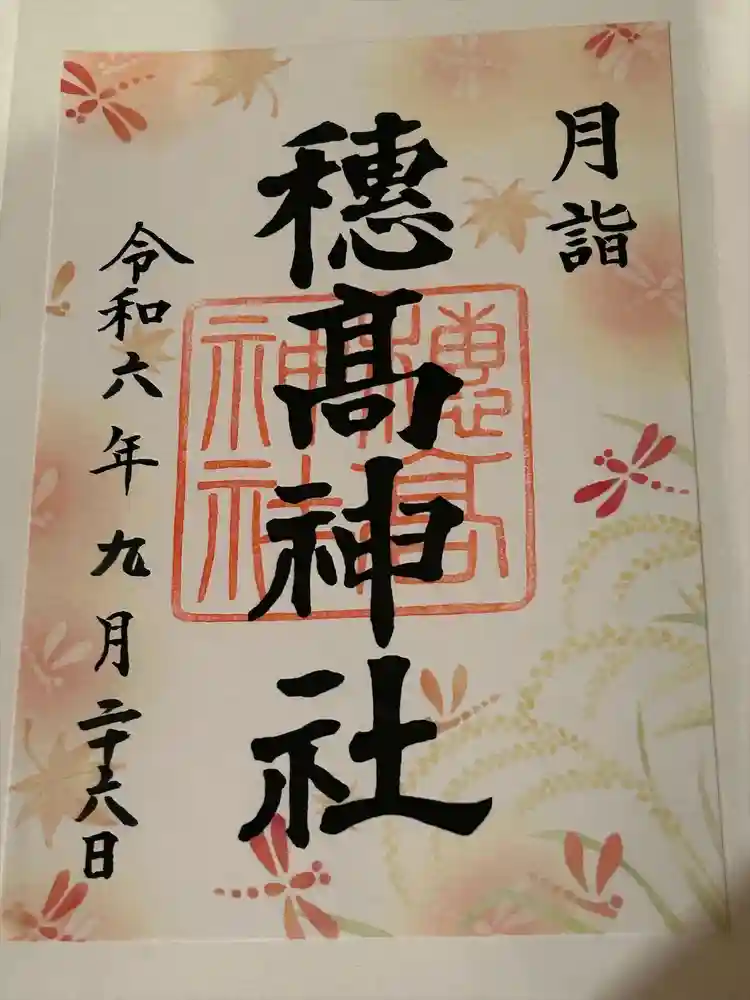 月詣
穂髙神社
穂髙
神社
令和六年九月二十六日